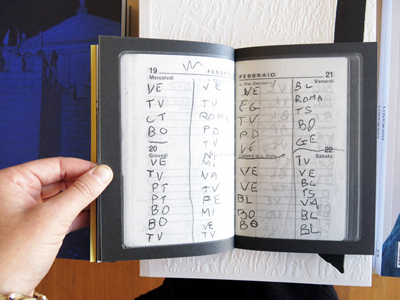 19
FEBBRAIO
Mercoledì
VE
VE
TV
TV
CT
ROMA
BO
PD
TV
20
Giovedì
VE
TV
MI
PT
NA
PT
TV
BO
PE
BO
MI
TV
VE
TV
FEBBRAIO
21
Venerdì
VE
BL
FG
ROMA
TV
TS
PD
BO
VE
GE
22
Sabato
VE
TV
VE
VE
BL
BL
TS
BO
VA
BO
BL
BL